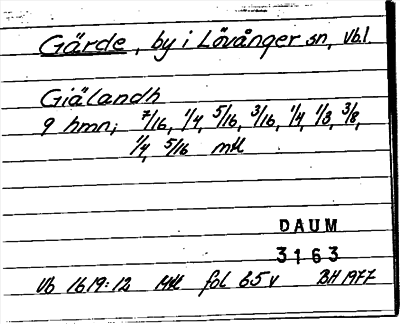 Gärde, by i Lövånger sn, Vb.
Giälandh
9 hmn; 7/16, 1/4, 5/16, 3/16, 1/4, 1/3, 3/8,
1/4, 5/16 mtl
DAUM
3163
Vb 1619:12 Mtl fol 65v BH 1977